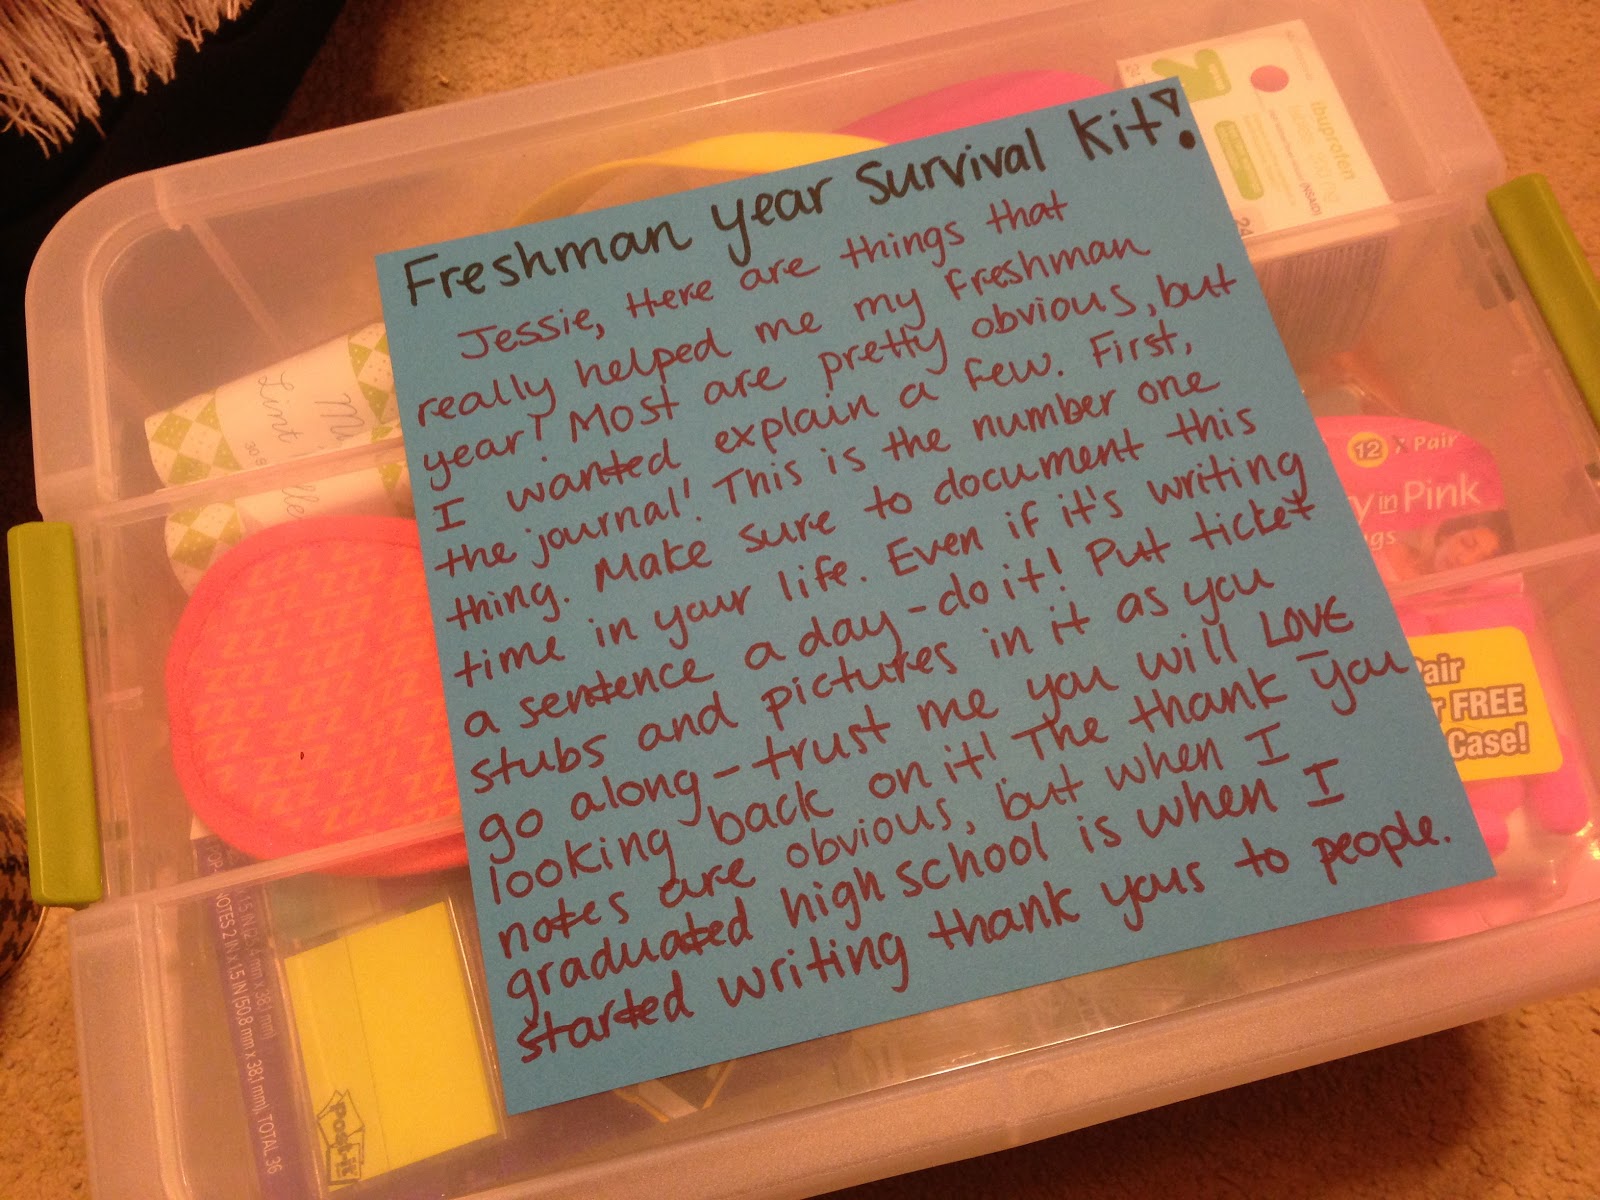 Freshman year survival Kit!
Jessie, Here are things that
really helped me my freshman
year! Most are pretty obvious, but
I wanted explain a few. First,
the journal! This is the number one
thing. Make sure to document this
time in your life. Even if it's writing
a sentence a day - do it! Put ticket
stubs and pictures in it as you
go along - trust me you will LOVE
looking back on it! The thank you
notes are obvious, but when I
graduated high school is when I
started writing thank yous to people.
Lint
30.8
Ibuprofen
(NSAID)
24
12 Pair
y in Pink
gs
air
r FREE
Case!
1.5 IN (2... mm x 38,1 mm)
NOTES 2 IN x 1.5 IN (50,8 mm x 38,1 mm), TOTAL 36
Post-it